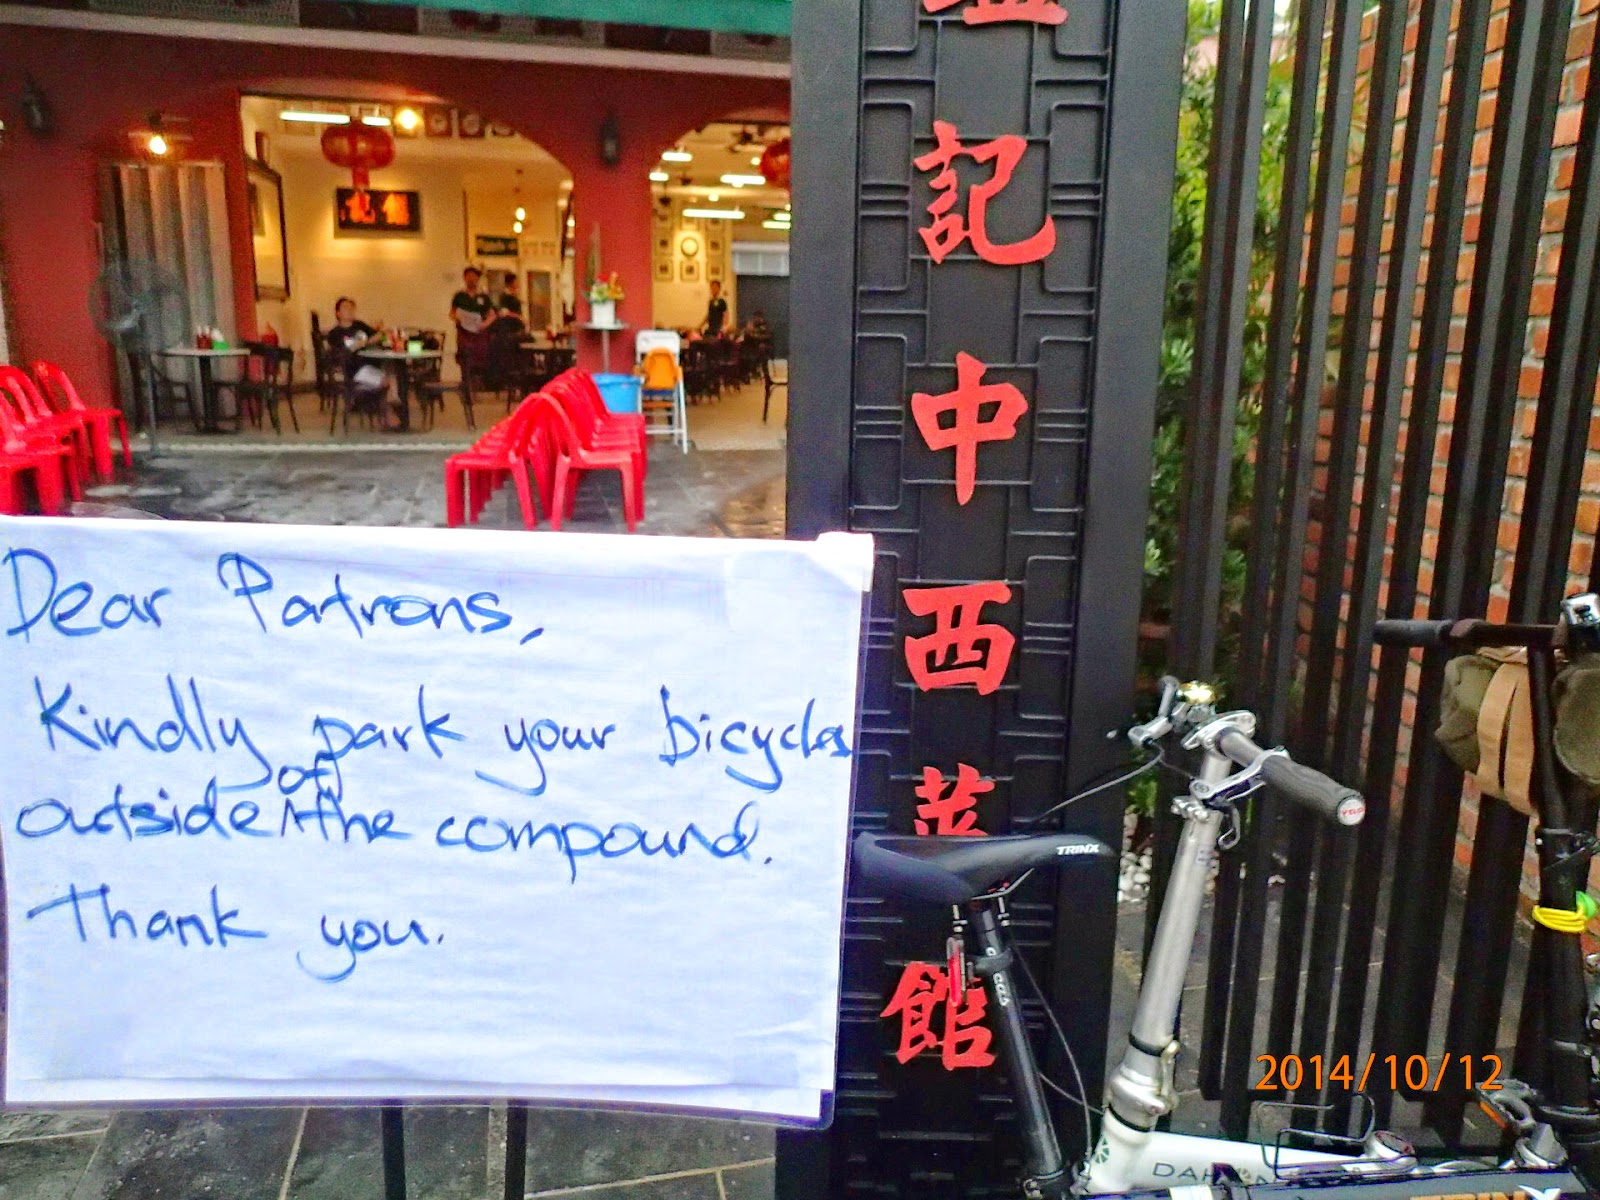 Dear Patrons,
Kindly park your bicycles
outside of the compound.
Thank you.
記中西菜館
TRINX
2014/10/12